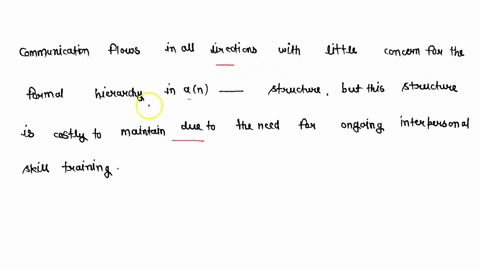 Communication flows in all directions with little concern for the
formal hierarchy in a(n) —— structure, but this structure
is costly to maintain due to the need for ongoing interpersonal
skill training.